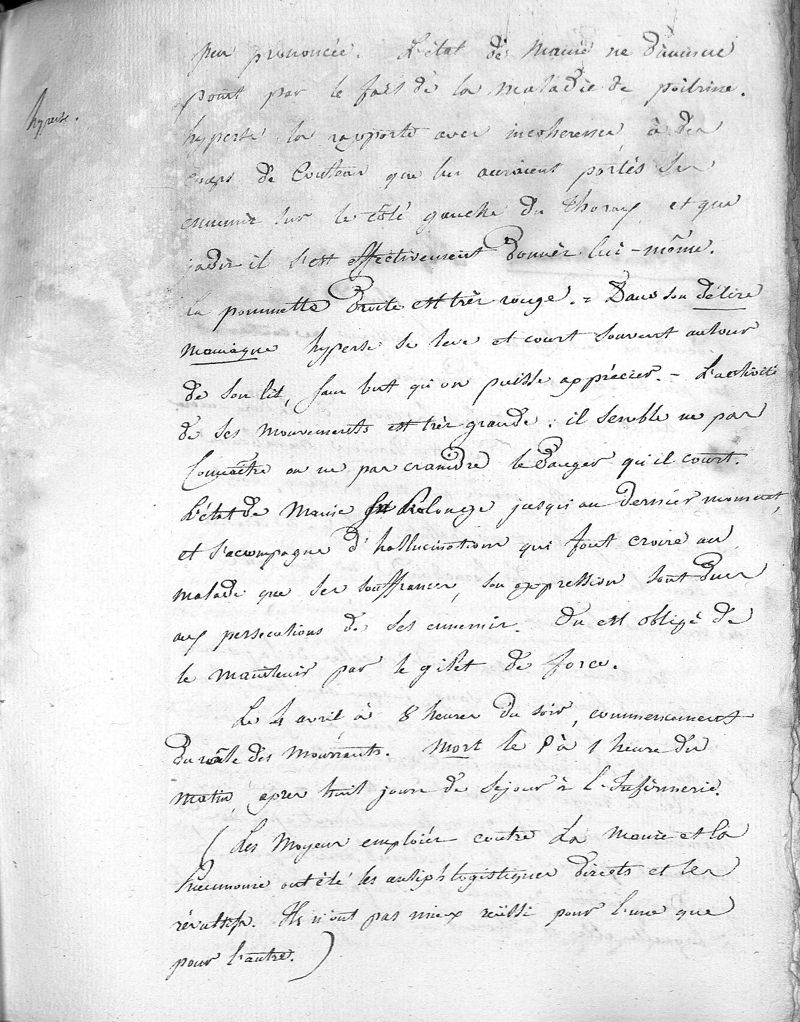 peu prononcée. L'état de Manie ne diminue
point par le fait de la maladie de poitrine.
hyperte.
hyperte la rapporte avec incohérence à des
coups de Couteau que lui auraient portés ses
ennemis sur le côté gauche du thorax, et que
jadis il s'est effectivement donnés lui-même.
la pommette droite est très rouge. = Dans son délire
maniaque hyperte se leve et court souvent autour
de son lit, sans but qu'on puisse apprécier. - L'activité
de ses mouvements est très grande : il semble ne pas
Connaître ou ne pas craindre le danger qu'il court.
L'état de Manie se prolonge jusqu'au dernier moment,
et s'accompagne d'hallucinations qui font croire au
malade que ses souffrances, son oppression sont dues
aux persecutions de ses ennemis. On est obligé de
le maintenir par le gilet de force.
Le 4 avril à 8 heures du soir, commencement
du râle des mourrants. Mort le à 1 heure du
matin apres huit jours de séjour à l'Infirmerie.
( Les Moyens emploiés contre La Manie et la
Pneumonie ont été les antiphlogistiques directs et les
révulsifs. Ils n'ont pas mieux réussi pour l'une que
pour l'autre. )